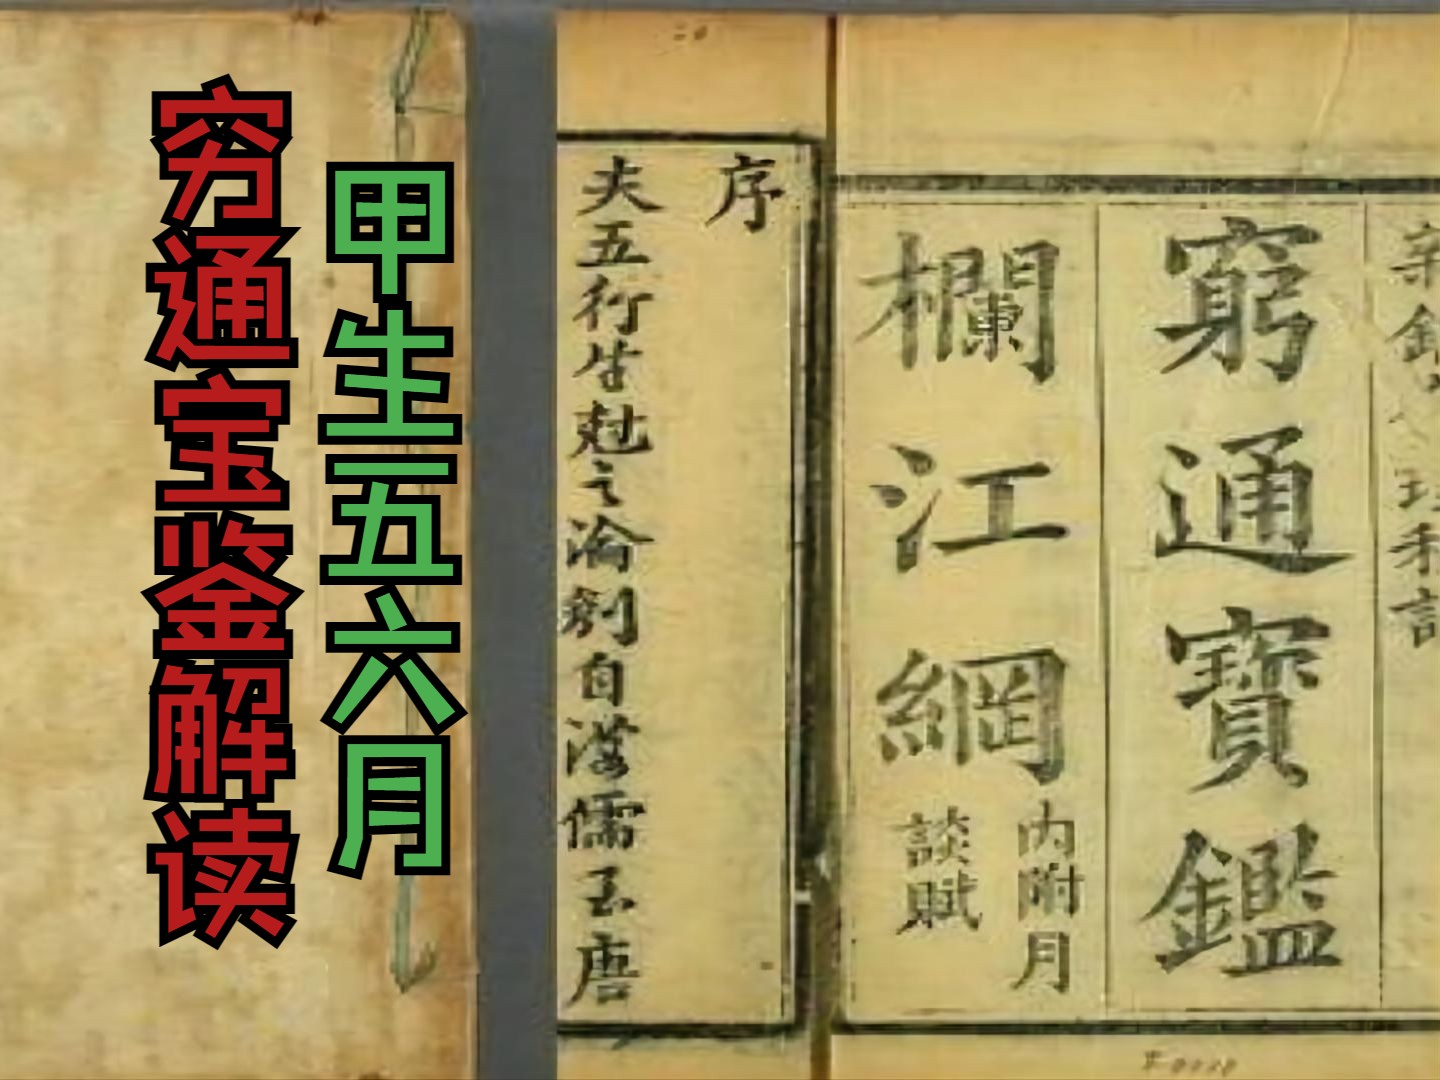 穷通宝鉴解读
甲生五六月
序
夫五行生尅之淪刱自漢儒至唐
窮通寶鑑
欄江網
内附月
談賦